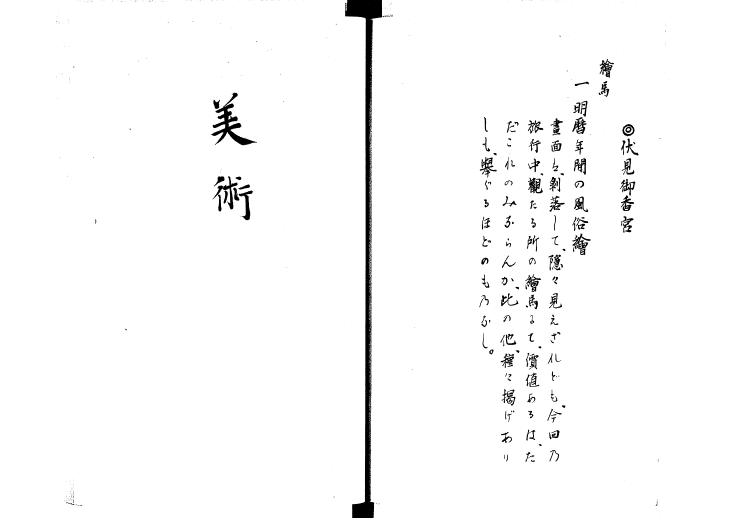 ◎伏見御香宮
繪馬
一 明曆年間の風俗繪
畫面は、剝落して、隱々見えざれども、今回乃
旅行中、觀たる所の繪馬にて、價値あるは、た
だこれのみならんか、此の他、種々揭げあり
しも、擧ぐるほどのもの乃なし。
美術